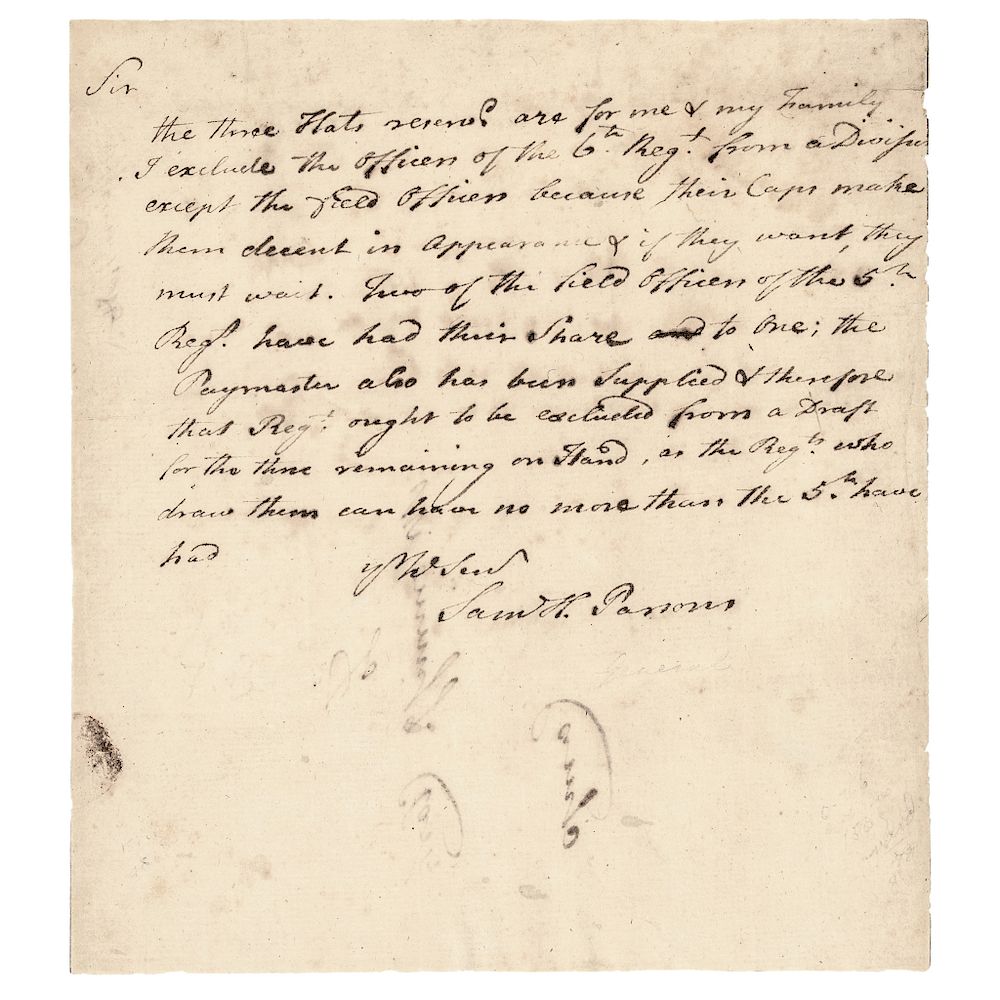 Sir
the three Hats reserv'd are for me & my Family
I exclude the Officers of the 6th Regt from a Division
except the Field Officers because their Caps make
them decent in Appearance & if they want, they
must wait. Two of the field Officers of the 5th
Regt. have had their Share and to One; the
Paymaster also has been Supplied & therefore
that Regt. ought to be excluded from a Draft
for the three remaining on Hand, as the Regts. who
draw them can have no more than the 5th have
had
yr H. Serv
Saml H. Parsons
General